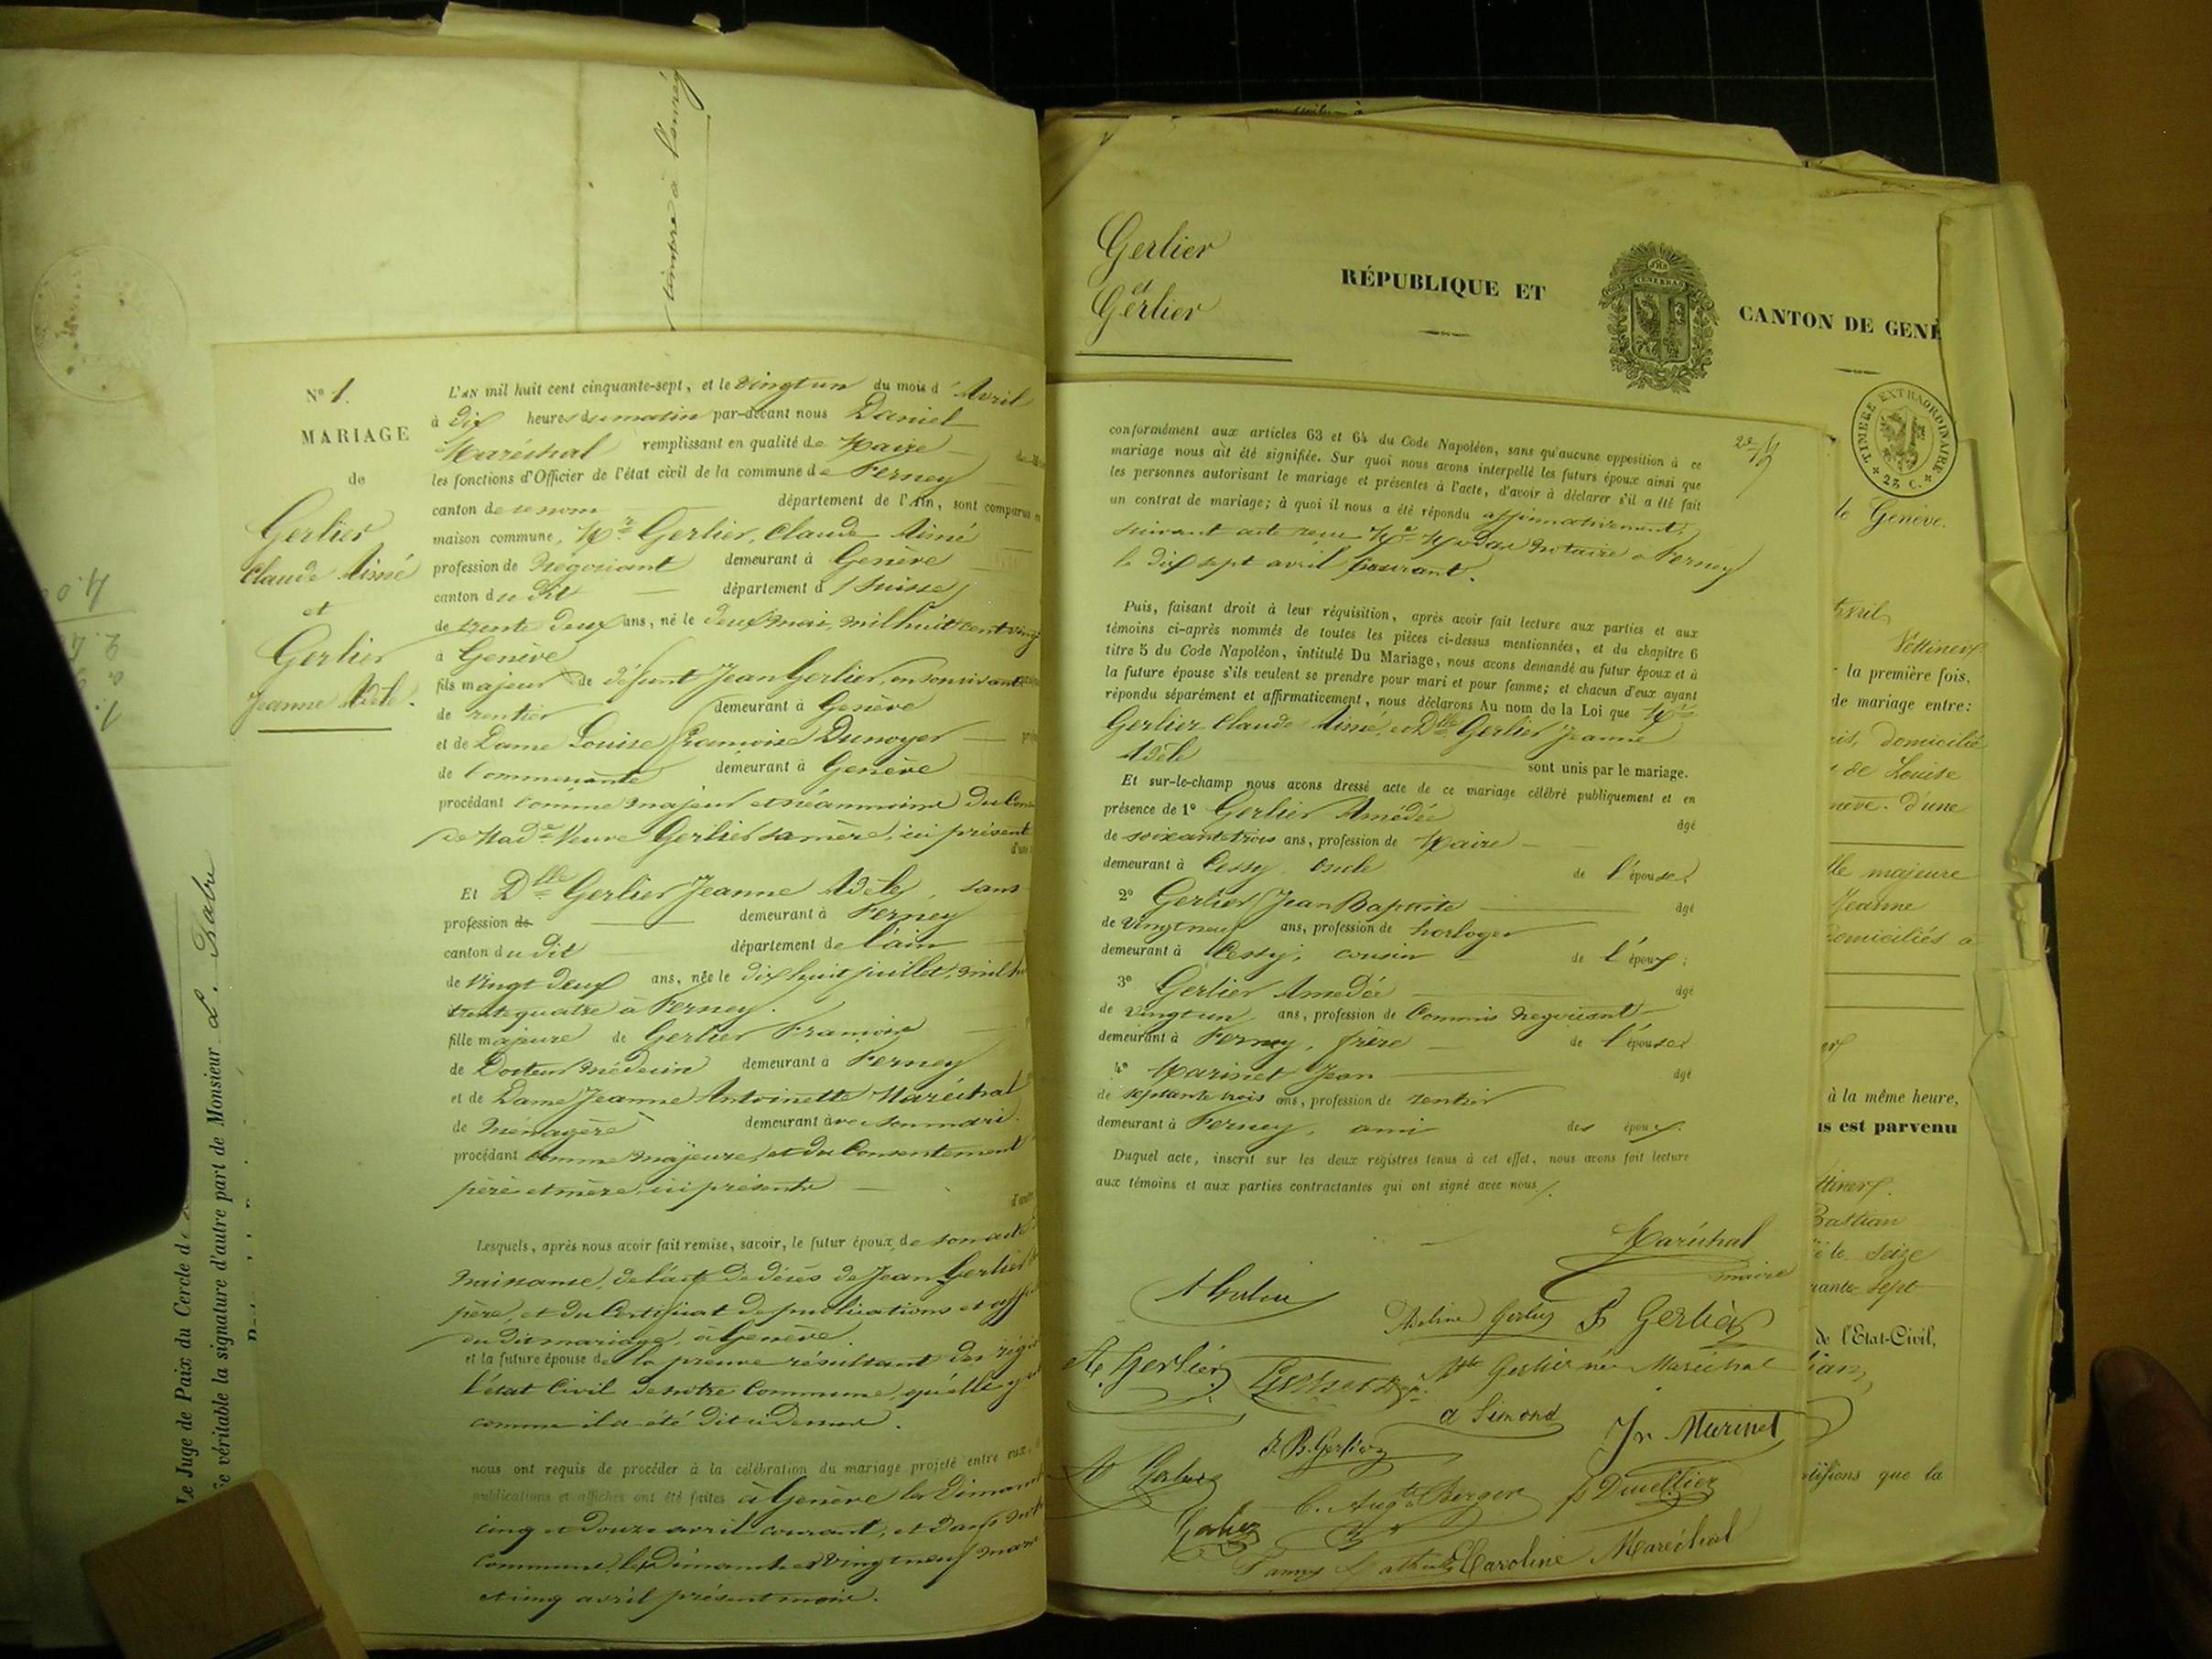 timbre à
Nº 1.
MARIAGE
de
Gerlier
Claude Aimé
et
Gerlier
Jeanne Adèle.
L'AN mil huit cent cinquante-sept, et le vingt un du mois d'Avril
à dix heures du matin par-devant nous Daniel
Maréchal remplissant en qualité de Maire
les fonctions d'Officier de l'état civil de la commune de Ferney
canton de ce nom département de l'Ain, sont comparus en
maison commune, Mr Gerlier, Claude Aimé
profession de Négociant demeurant à Genève
canton du dit département d (Suisse)
de trente deux ans, né le deux mai, mil huit cent ving
à Genève
fils majeur de défunt Jean Gerlier, en son vivant
de rentier demeurant à Genève
et de Dame Louise Françoise Dunoyer
de Commerçante demeurant à Genève
procédant comme majeur et néanmoins du Con
de Made Veuve Gerlier sa mère, ici présente
d'une
Et Dlle Gerlier Jeanne Adèle, sans
profession de demeurant à Ferney
canton du dit département de l'ain
de vingt deux ans, née le dix huit juillet, mil h
trente quatre à Ferney.
fille majeure de Gerlier François
de Docteur Médecin demeurant à Ferney
et de Dame Jeanne Antoinette Maréchal
de Ménagère demeurant avec son mari.
procédant comme majeure, et du Consentement
père et mère, ici présents
Lesquels, après nous avoir fait remise, savoir, le futur époux, de son acte
naissance, de l'acte de décès de Jean Gerlier
père, et du Certificat de publications et aff
du dit mariage, à Genève.
et la future épouse de la preuve résultant des régi
l'état Civil de notre Commune, qu'elle y
comme il a été dit ci dessus.
nous ont requis de procéder à la célébration du mariage projeté entre eux,
publications et affiches ont été faites à Genève les Dimanc
cinq et douze avril courant, et dans not
commune, les Dimanches vingt neuf mars
et cinq avril présent mois.
Le Juge de Paix du Cercle de
véritable la signature d'autre part de Monsieur L.
Gerlier
et
Gerlier
RÉPUBLIQUE ET CANTON DE GENÈ
TIMBRE EXTRAORDINAIRE
25 C.
conformément aux articles 63 et 64 du Code Napoléon, sans qu'aucune opposition à ce
mariage nous ait été signifiée. Sur quoi nous avons interpellé les futurs époux ainsi que
les personnes autorisant le mariage et présentes à l'acte, d'avoir à déclarer s'il a été fait
un contrat de mariage; à quoi il nous a été répondu affirmativement,
suivant acte reçu Me notaire à Ferney
le dix sept avril courant.
Puis, faisant droit à leur réquisition, après avoir fait lecture aux parties et aux
témoins ci-après nommés de toutes les pièces ci-dessus mentionnées, et du chapitre 6
titre 5 du Code Napoléon, intitulé Du Mariage, nous avons demandé au futur époux et à
la future épouse s'ils veulent se prendre pour mari et pour femme; et chacun d'eux ayant
répondu séparément et affirmativement, nous déclarons Au nom de la Loi que Mr
Gerlier Claude Aimé, et Dlle Gerlier Jeanne
Adèle sont unis par le mariage.
Et sur-le-champ nous avons dressé acte de ce mariage célébré publiquement et en
présence de 1º Gerlier Amédée âgé
de soixante trois ans, profession de Maire
demeurant à Cessy, oncle de l'épouse;
2º Gerlier Jean Baptiste âgé
de vingt neuf ans, profession de horloger
demeurant à Cessy, cousin de l'époux;
3º Gerlier Amédée âgé
de vingt un ans, profession de Commis négociant
demeurant à Ferney, frère de l'épouse;
4º Marinet Jean âgé
de septante trois ans, profession de rentier
demeurant à Ferney, ami des époux.
Duquel acte, inscrit sur les deux registres tenus à cet effet, nous avons fait lecture
aux témoins et aux parties contractantes qui ont signé avec nous.
Maréchal
maire
Gerlier
A. Gerlier
née Maréchal
a Simond
Jn Marinet
J. B. Gerlier
C. Augte Berger
Duvillier
Fanny
Caroline Maréchal
de Genève.
Avril
la première fois,
de mariage entre:
domicilié
de Louise
d'une
majeure
Jeanne
domiciliés à
à la même heure,
us est parvenu
Bastian
le seize
sept
de l'Etat-Civil,
que la